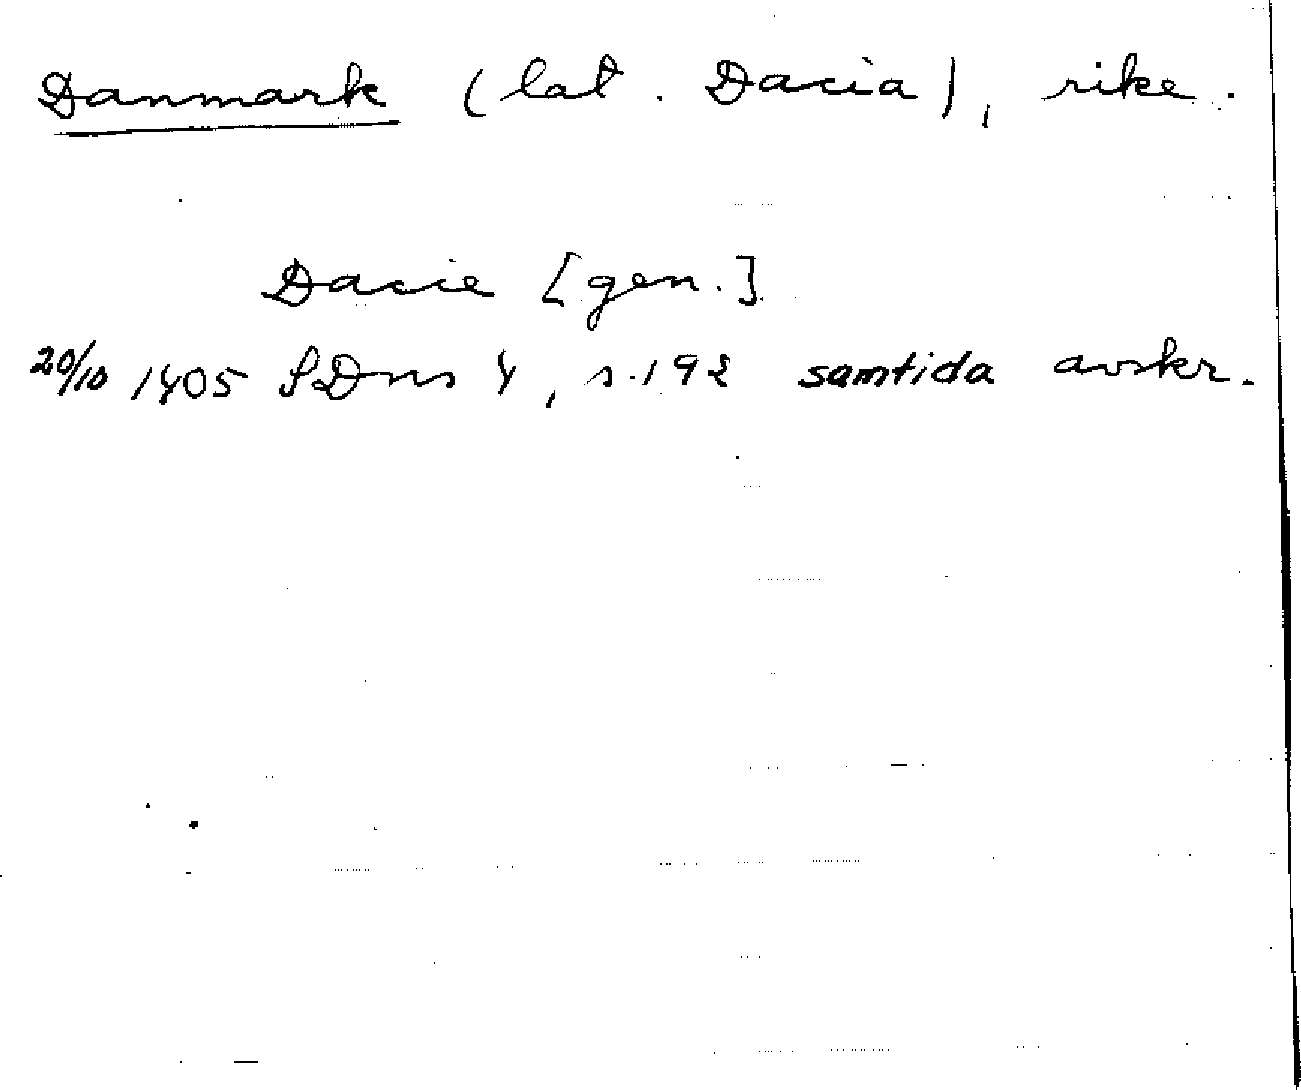 Danmark (lat. Dacia), rike.
Dacie [gen.]
20/10 1405 SDns 4, s. 192 samtida avskr.